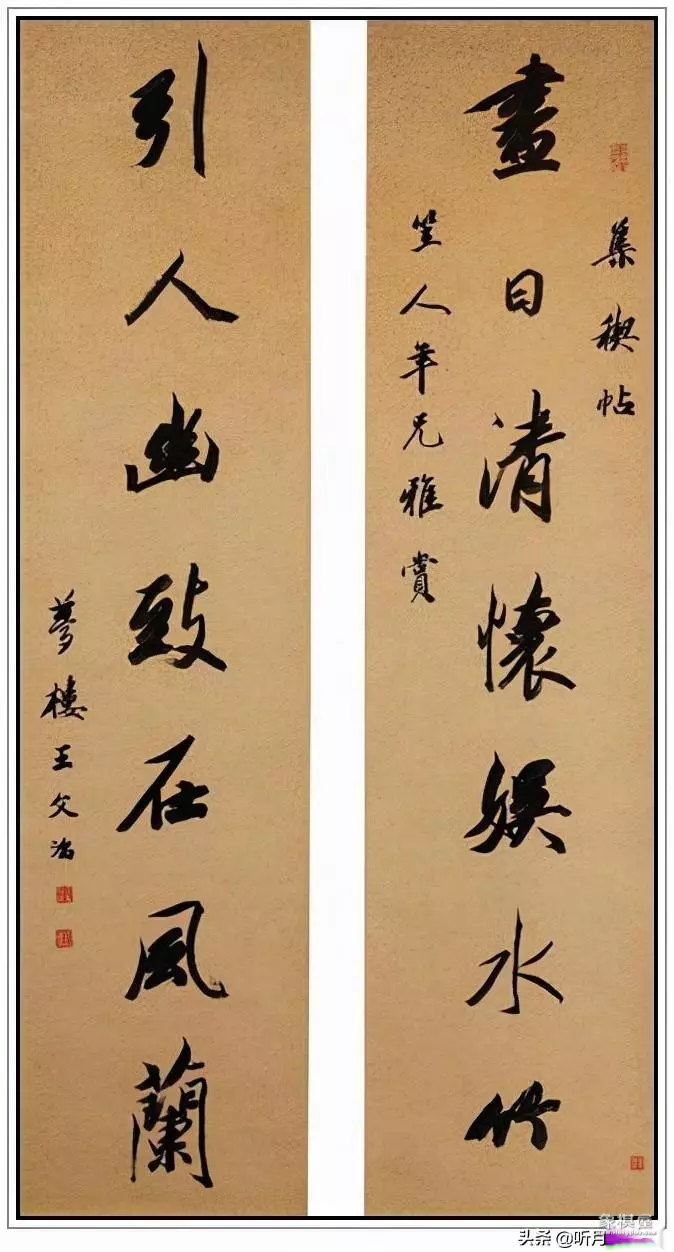 集稧帖
盡日清懷娛水竹
笠人年兄雅賞
引人幽致在風蘭
夢樓王文治
头条 @听月